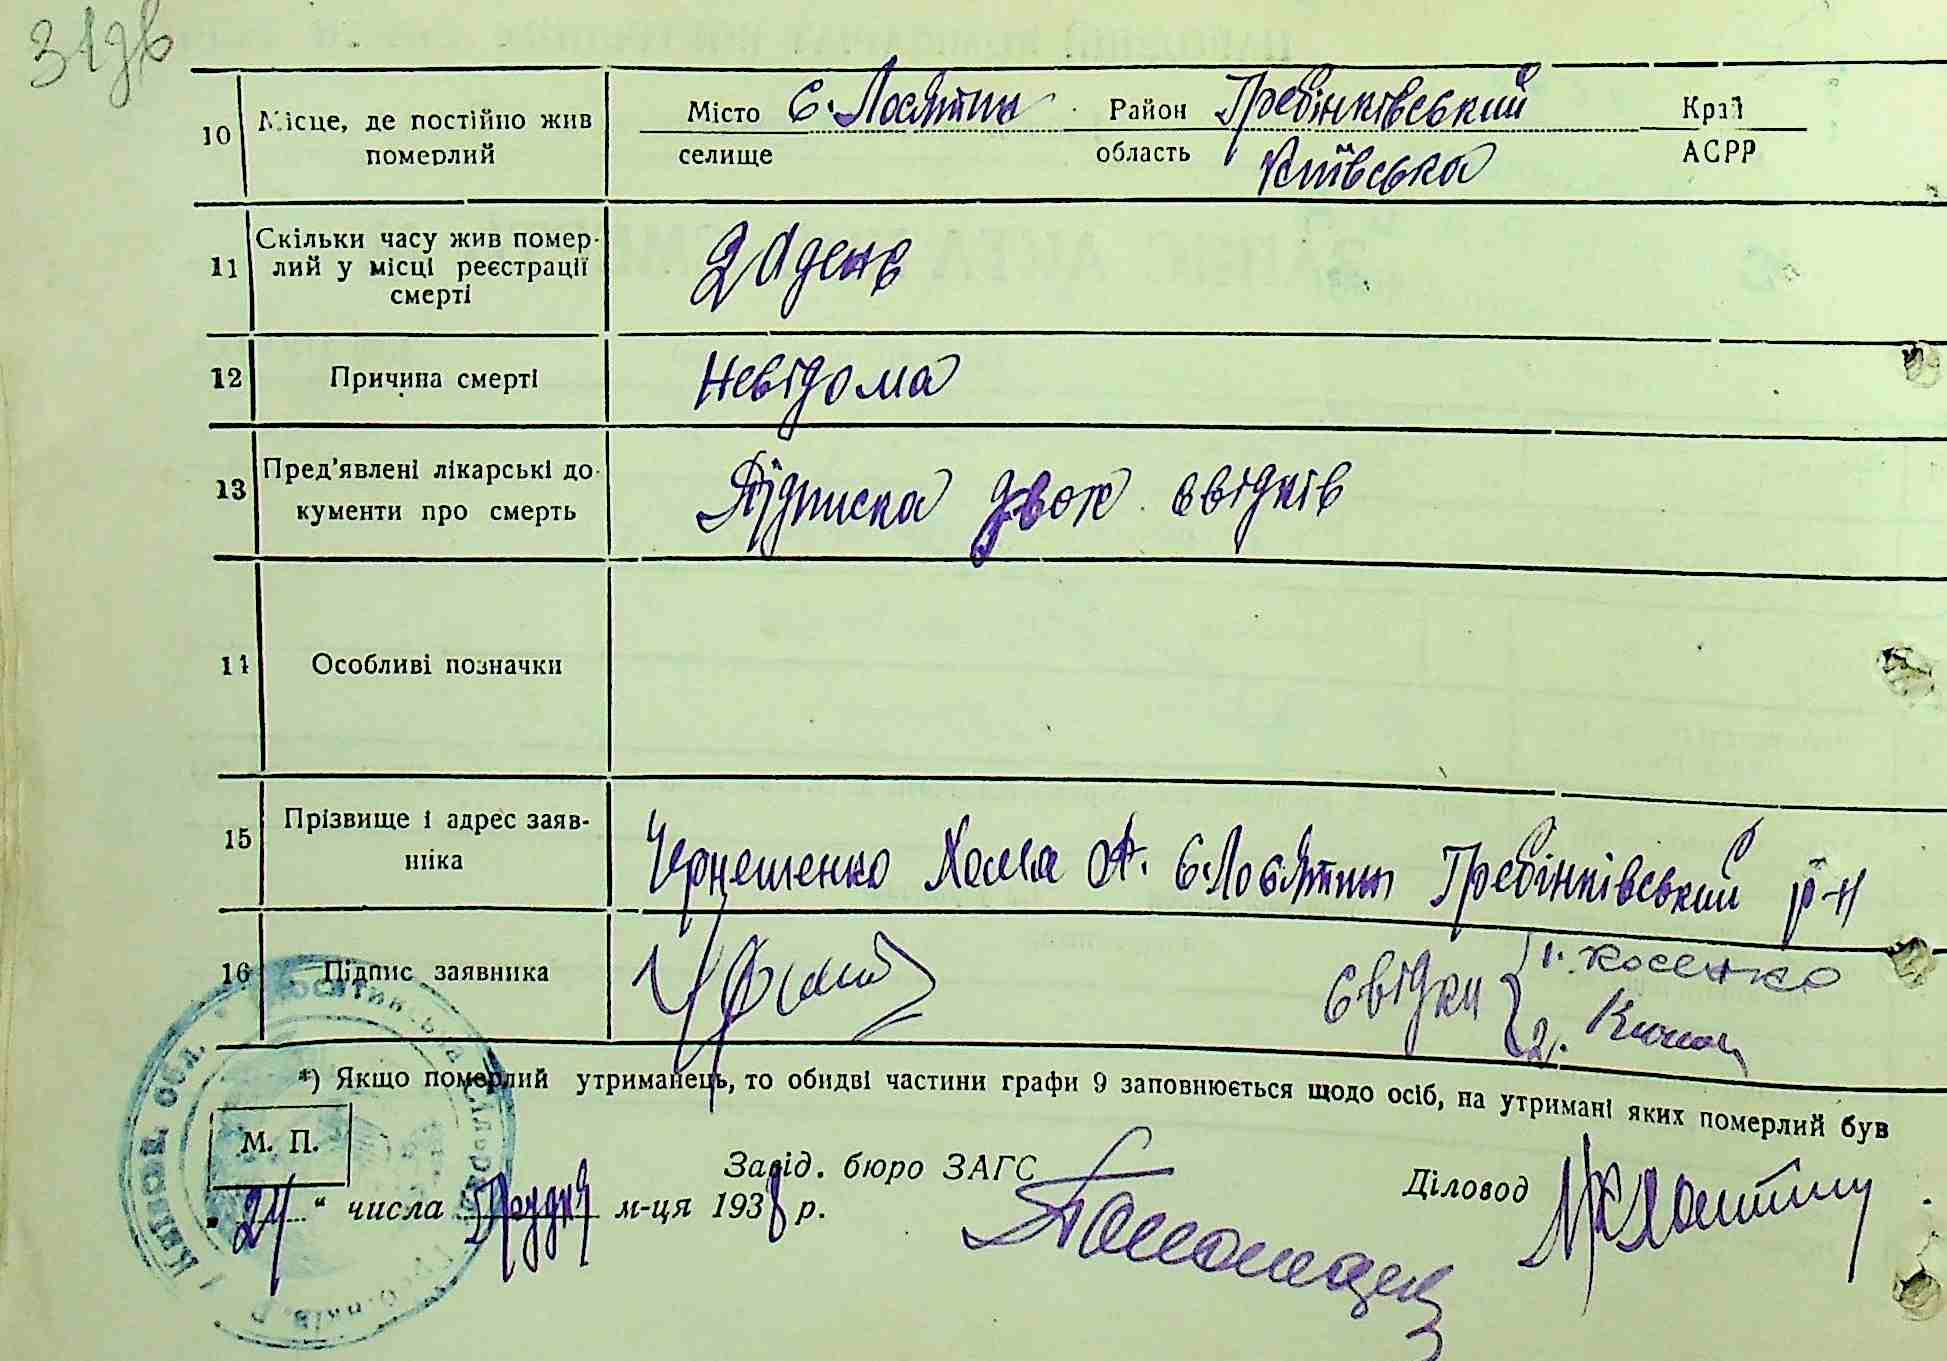 31 зв
10 Місце, де постійно жив померлий
Місто с. Лосятин Район Гребінківський Край
селище область Київська АСРР
11 Скільки часу жив помер-
лий у місці реєстрації
смерті
21 день
12 Причина смерті Невідома
13 Пред’явлені лікарські до-
кументи про смерть
Підписка двох свідків
14 Особливі позначки
15 Прізвище і адрес заяв-
ника
Хома А. с. Лосятин Гребінківський р-н
16 Підпис заявника
свідки 1. Косенко
2.
*) Якщо померлий утриманець, то обидві частини графи 9 заповнюється щодо осіб, на утримані яких померлий був
М. П.
Завід. бюро ЗАГС
Діловод
„24“ числа Грудня м-ця 1938 р.